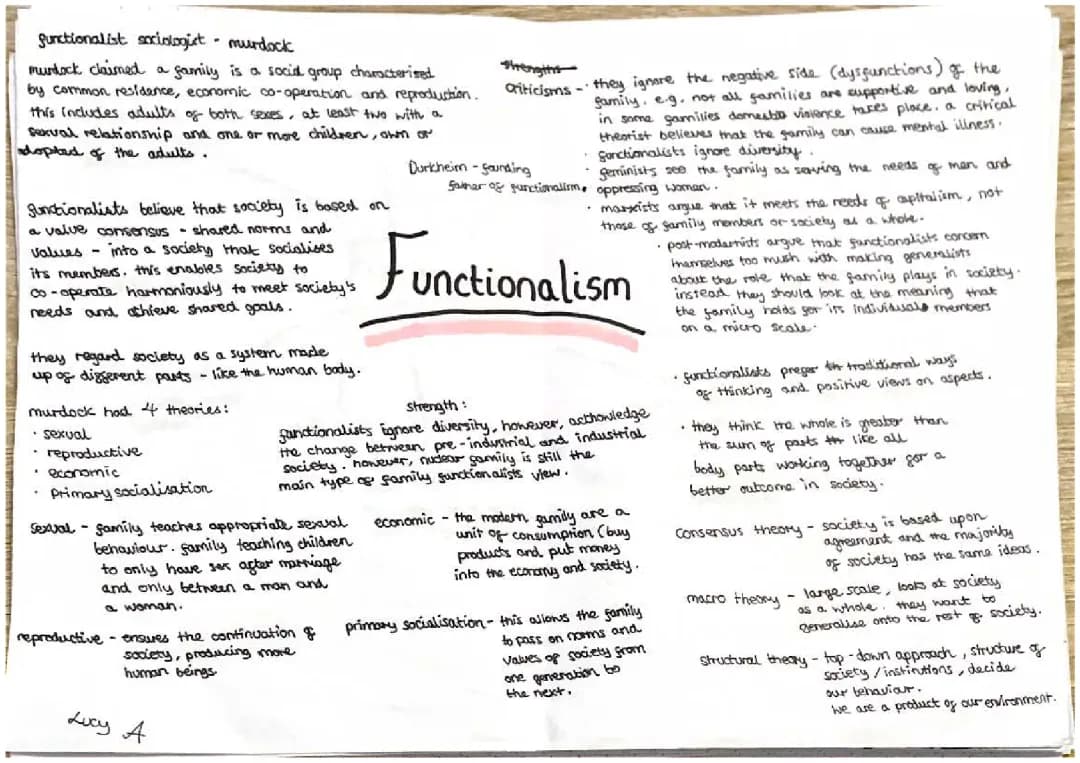 functionalist sociologist - murdock
murdock claimed a family is a social group characterised
by common residence, economic co-operation and reproduction.
this includes adults of both sexes, at least two with a
sexual relationship and one or more children, own or
adopted of the adults.
Durkheim - founding
father of functionalism.
functionalists believe that society is based on
a value consensus - shared norms and
values - into a society that socialises
its members. this enables society to
co-operate harmoniously to meet society's
needs and achieve shared goals.
they regard society as a system made
up of different parts - like the human body.
Functionalism
strengths
criticisms - · they ignore the negative side (dysfunctions) of the
family. e.g, not all families are supportive and loving,
in some families domestic violence takes place. a critical
theorist believes that the family can cause mental illness.
· functionalists ignore diversity.
· feminists see the family as serving the needs of men and
oppressing women.
· marxists argue that it meets the needs of capitalism, not
those of family members or society as a whole.
· post-modernists argue that functionalists concern
themselves too much with making generalists
about the role that the family plays in society.
instead they should look at the meaning that
the family holds for its individuals members
on a micro scale.
· functionalists prefer traditional ways
of thinking and positive views on aspects.
· they think the whole is greater than
the sum of parts like all
body parts working together for a
better outcome in society.
murdock had 4 theories:
· sexual
· reproductive
· economic
· primary socialisation
strength:
functionalists ignore diversity, however, acknowledge
the change between pre-industrial and industrial
society. however, nuclear family is still the
main type of family functionalists view.
sexual - family teaches appropriate sexual
behaviour. family teaching children
to only have sex after marriage
and only between a man and
a woman.
reproductive - ensures the continuation of
society, producing more
human beings
economic - the modern family are a
unit of consumption (buy
products and put money
into the economy and society.
primary socialisation - this allows the family
to pass on norms and
values of society from
one generation to
the next.
consensus theory - society is based upon
agreement and the majority
of society has the same ideas.
macro theory - large scale, looks at society
as a whole. they want to
generalise onto the rest of society.
structural theory - top-down approach, structure of
society/institutions, decide
our behaviour.
we are a product of our environment.
Lucy A